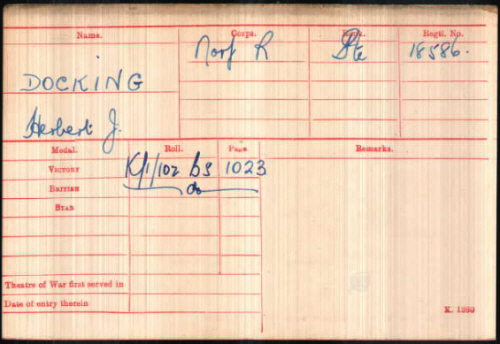 Name. Corps. Rank. Regtl. No.
DOCKING Norf R Pte 18586.
Herbert J.
Medal. Roll. Page. Remarks.
VICTORY K/1/102 B3 1023
BRITISH do
STAR
Theatre of War first served in
Date of entry therein
K. 1380